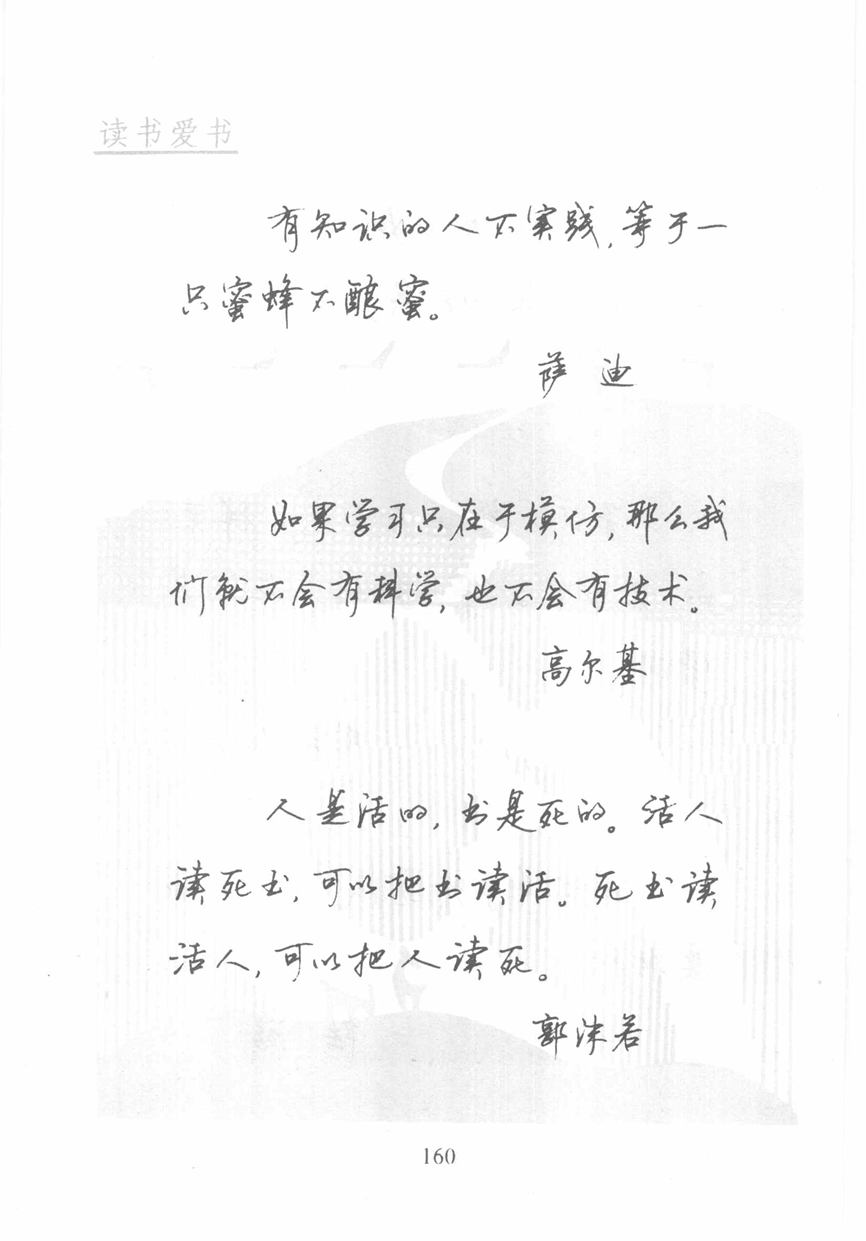 读书爱书
有知识的人不实践,等于一
只蜜蜂不酿蜜。
萨迪
如果学习只在于模仿,那么我
们就不会有科学,也不会有技术。
高尔基
人是活的,书是死的。活人
读死书,可以把书读活。死书读
活人,可以把人读死。
郭沫若
160